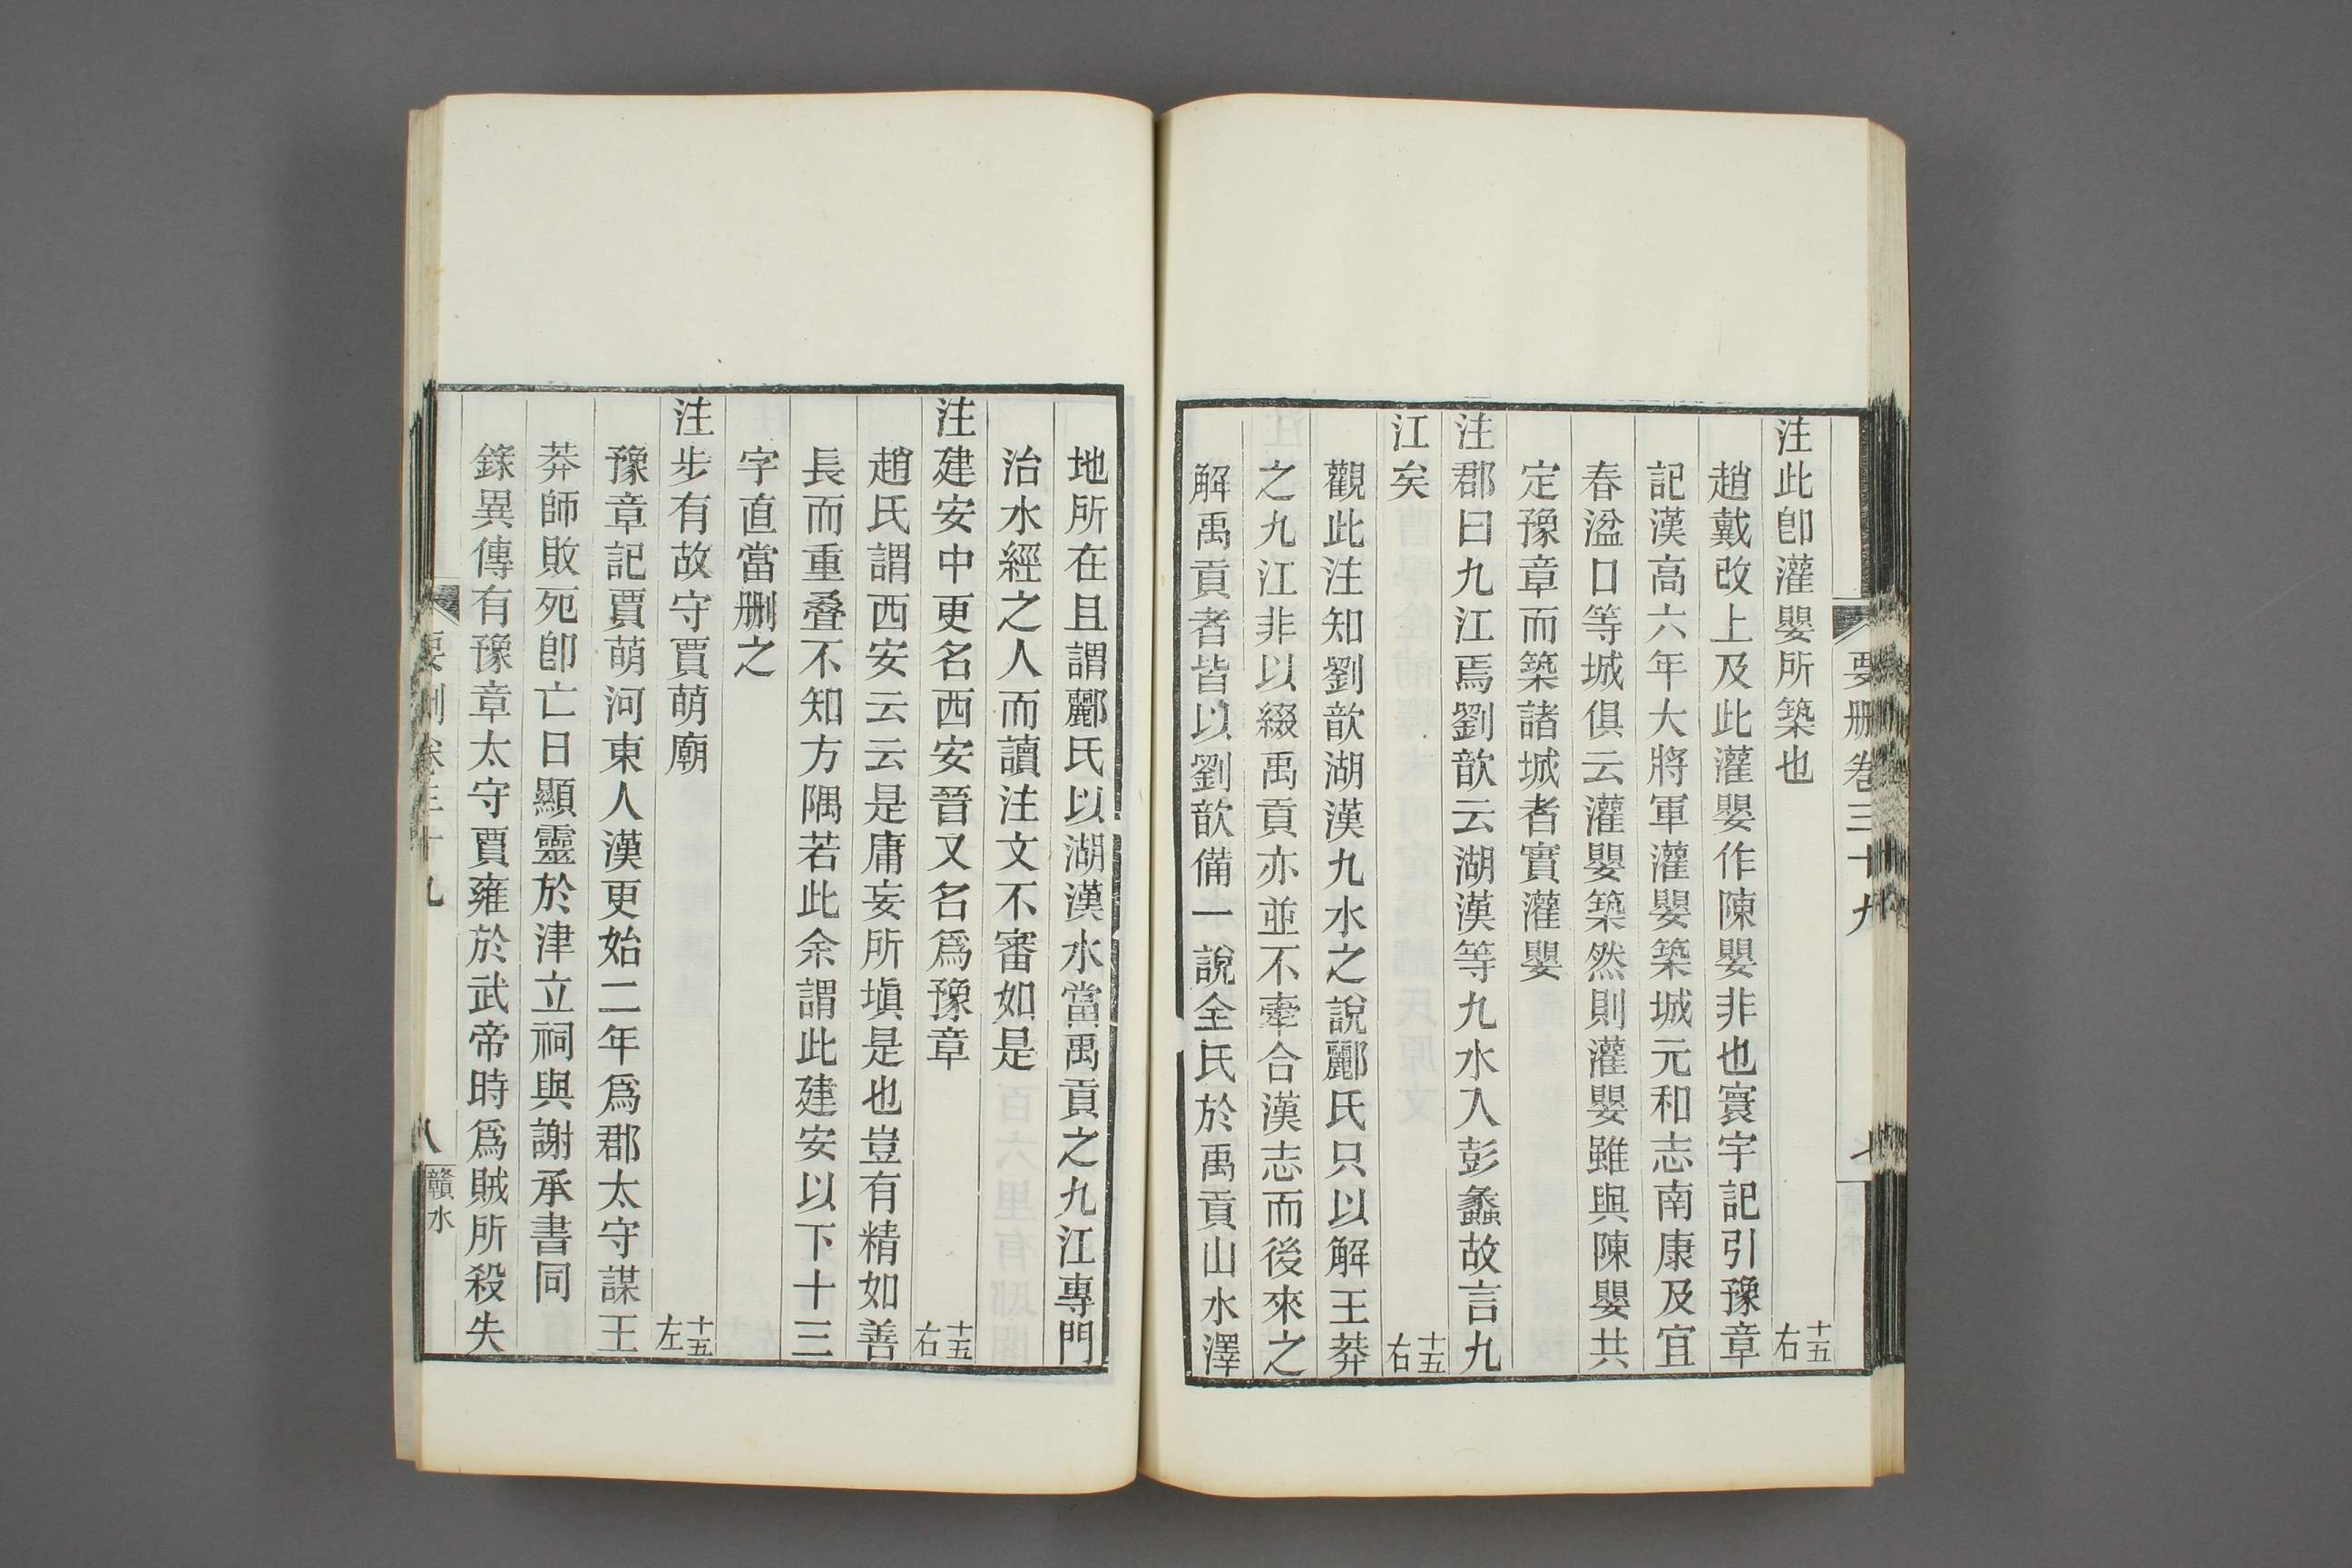 要刪卷三十九
七
注此卽灌嬰所築也 十五右
趙戴改上及此灌嬰作陳嬰非也寰宇記引豫章
記漢高六年大將軍灌嬰築城元和志南康及宜
春湓口等城俱云灌嬰築然則灌嬰雖與陳嬰共
定豫章而築諸城者實灌嬰
注郡曰九江焉劉歆云湖漢等九水入彭蠡故言九
江矣 十五右
觀此注知劉歆湖漢九水之說酈氏只以解王莽
之九江非以綴禹貢亦並不牽合漢志而後來之
解禹貢者皆以劉歆備一說全氏於禹貢山水澤
地所在且謂酈氏以湖漢水當禹貢之九江專門
治水經之人而讀注文不審如是
注建安中更名西安晉又名爲豫章 十五右
趙氏謂西安云云是庸妄所塡是也豈有精如善
長而重叠不知方隅若此余謂此建安以下十三
字直當刪之
注步有故守賈萌廟 十五左
豫章記賈萌河東人漢更始二年爲郡太守謀王
莽師敗死卽亡日顯靈於津立祠與謝承書同
錄異傳有豫章太守賈雍於武帝時爲賊所殺失
要刪卷三十九
八 贛水